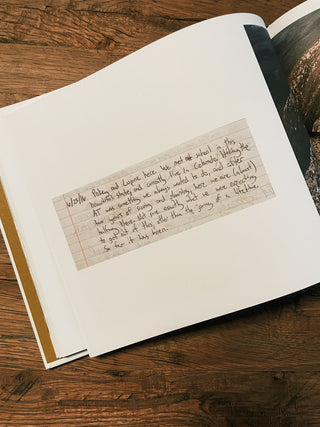 4/23/16 Finley and Lupine here. We met at school in this
beautiful state, and currently live in Colorado. Hiking the
AT was something we always wanted to do, and after
two years of saving and planning, here we are (almost)
halfway there. Not sure exactly what we were expecting
to get out of this, other than the journey of a lifetime.
So far it has been.